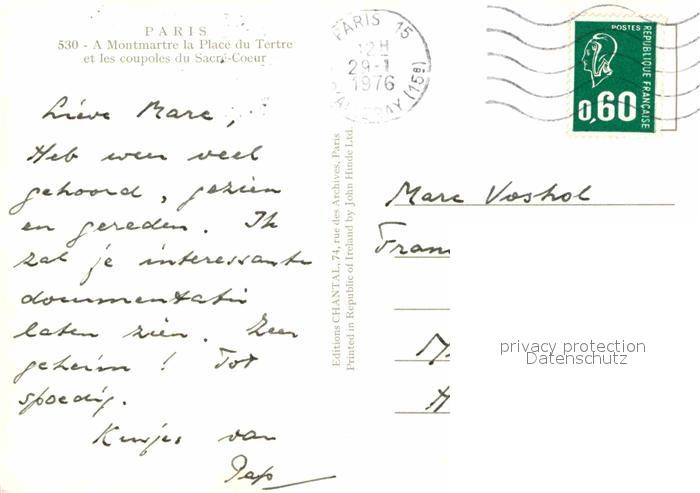 PARIS
530 - A Montmartre la Place du Tertre
et les coupoles du Sacré-Coeur
Lieve Marc,
Heb weer veel
gehoord, gezien
en gereden. Ik
zal je interessante
documentatie
laten zien. Zeer
geheim! Tot
spoedig.
Kusjes van
Pap
Editions CHANTAL, 74, rue des Archives, Paris
Printed in Republic of Ireland by John Hinde Ltd.
PARIS 15
12H
29-1
1976
(15e)
POSTES
REPUBLIQUE FRANÇAISE
0,60
Marc Voshol
Fran
M
A
privacy protection
Datenschutz